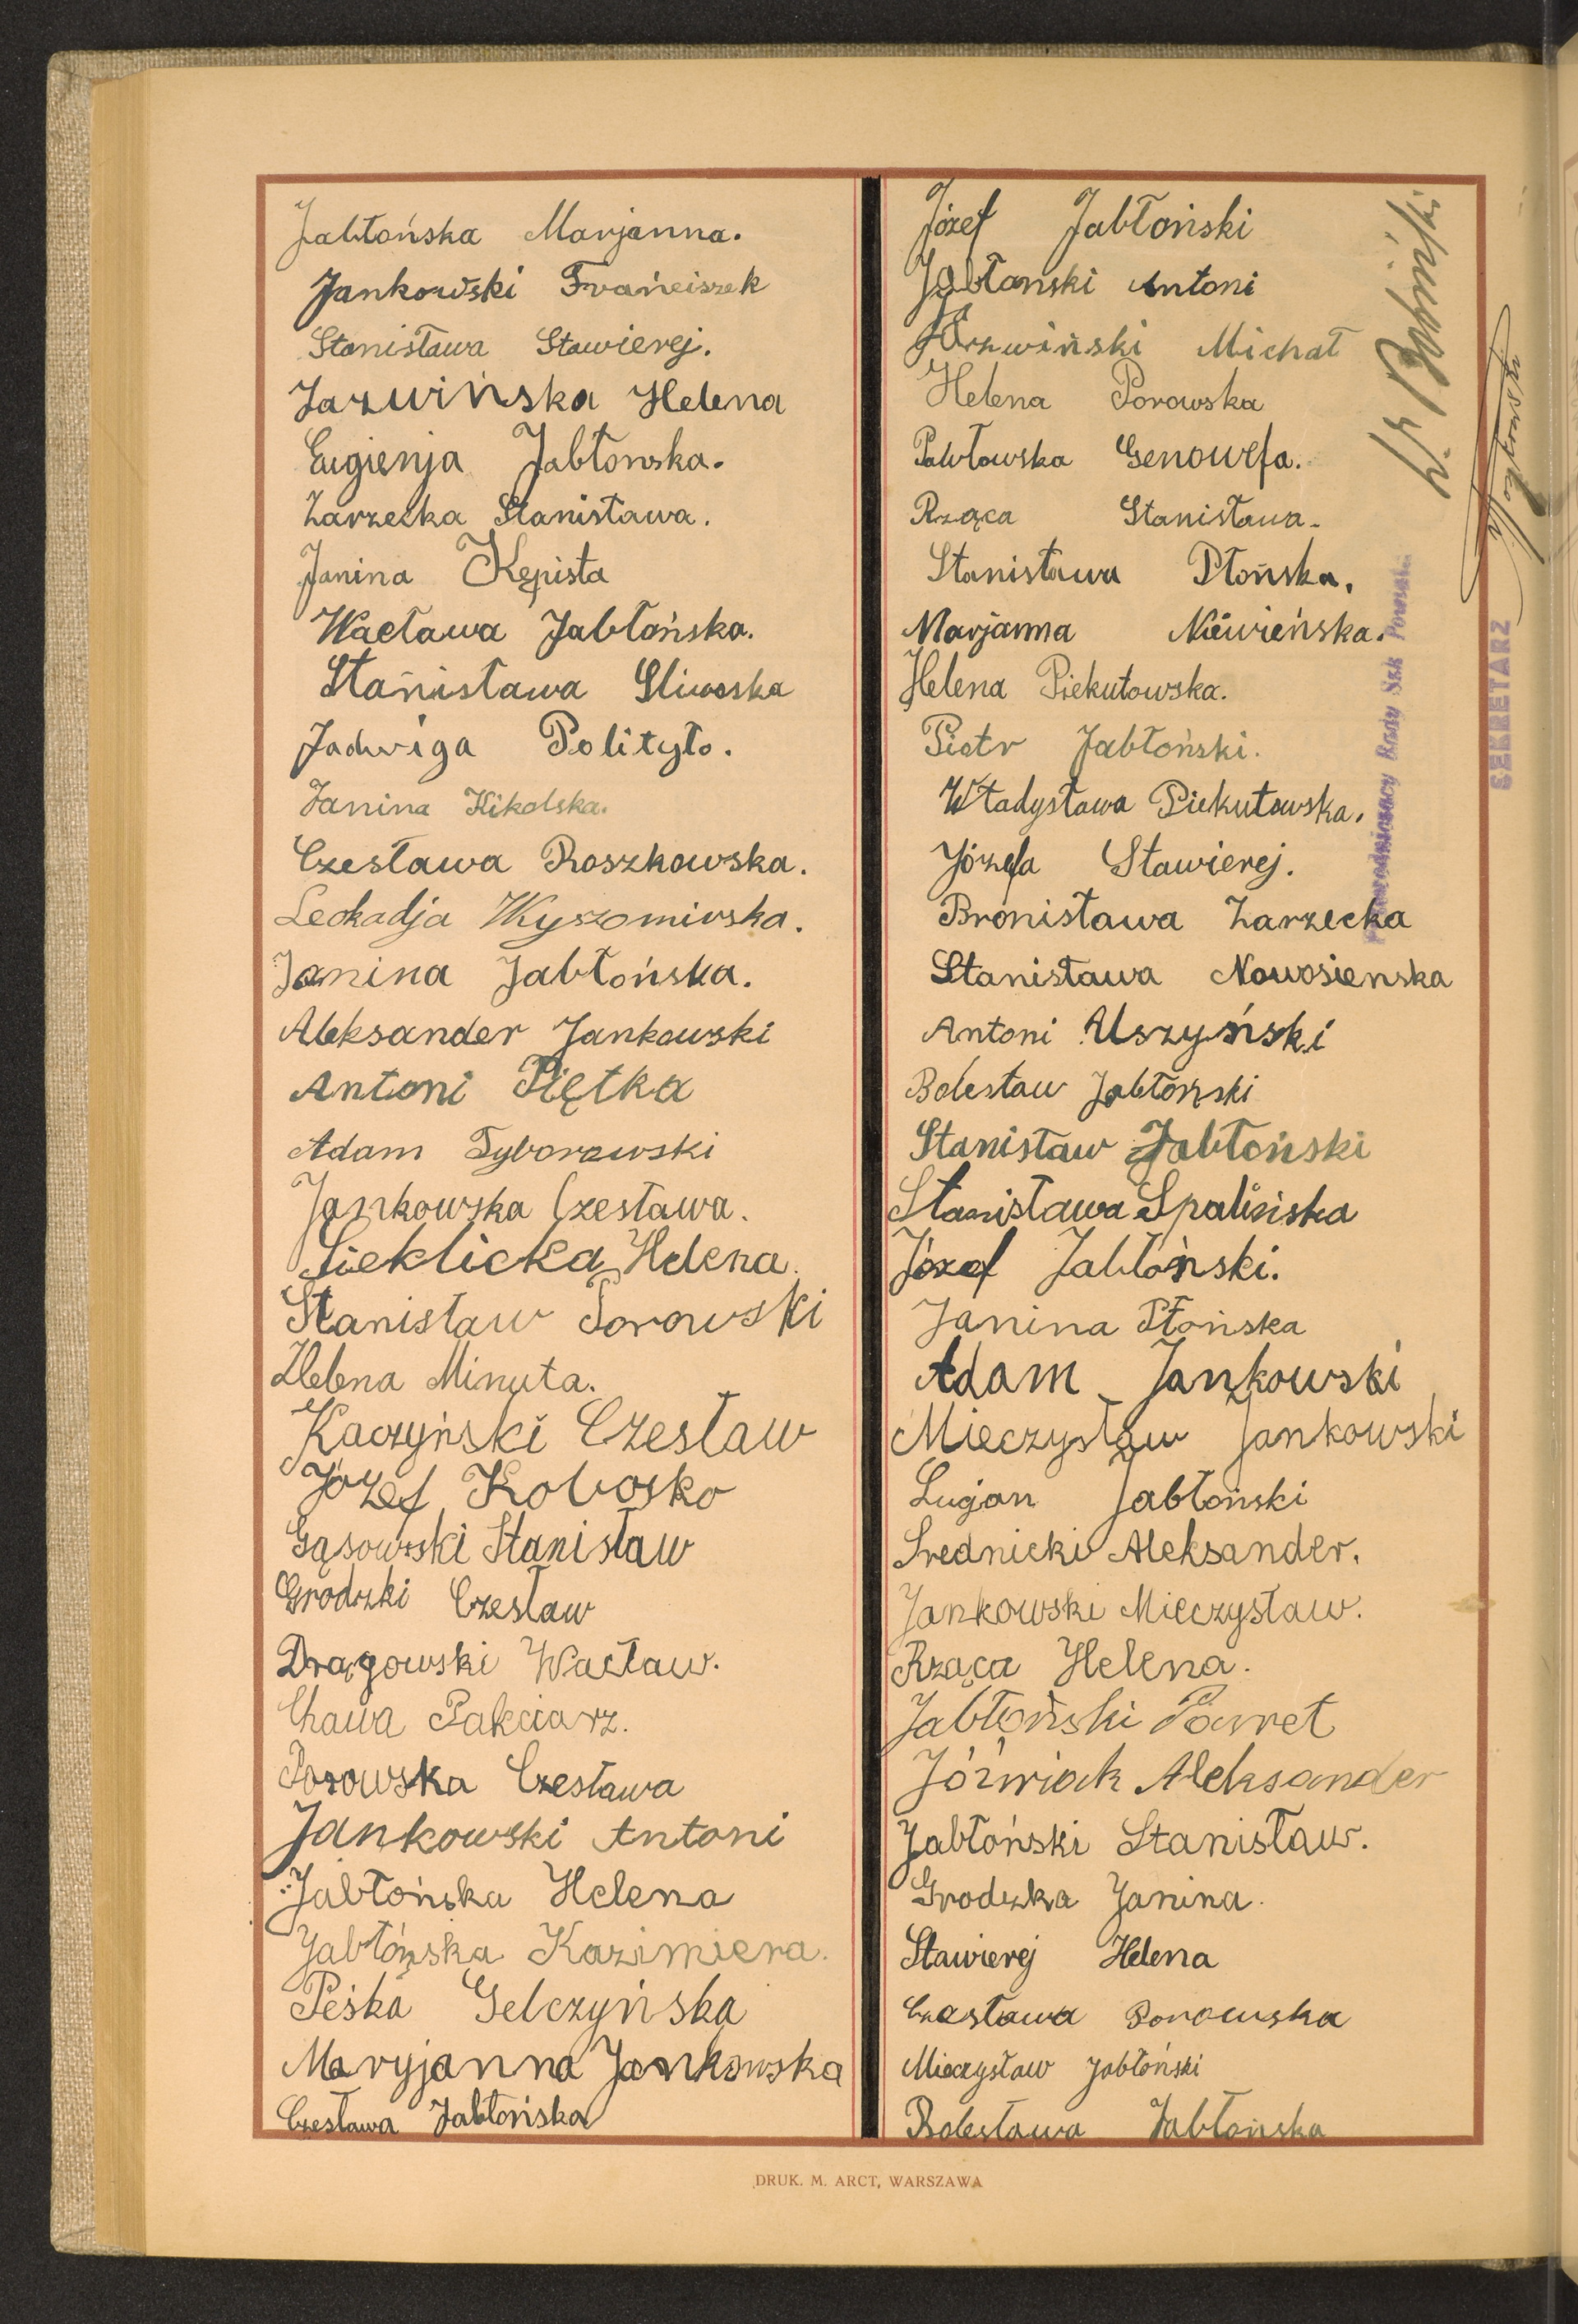 Jabłońska Marjanna.
Jankowski Frańciszek
Stanisława Stawierej.
Jarzwińska Helena
Eugienja Jabłonska.
Zarzecka Stanisława.
Janina Kępista
Wacława Jabłońska.
Stanisława Sliwoska
Jadwiga Polityło.
Janina Kikolska.
Czesława Roszkowska.
Leokadja Wyszomirska.
Janina Jabłońska.
Aleksander Jankowski
Antoni Piętka
Adam Tyborowski
Jankowska Czesława.
Sieklicka Helena.
Stanisław Porowski
Helena Minuta.
Kaczyński Czesław
Józef Kobosko
Gąsowski Stanisław
Grodzki Czesław
Drągowski Wacław.
Chawa Pakciarz.
Porowska Czesława
Jankowski Antoni
Jabłońska Helena
Jabłońska Kazimiera.
Peśka Gelczyńska
Maryjanna Jankowska
Czesława Jabłońska
Józef Jabłoński
Jabłonski Antoni
Michał
Helena Porowska
Pawłowska Genowefa.
Rząca Stanisława.
Stanisława Płońska.
Marjanna Niewieńska.
Helena Piekutowska.
Piotr Jabłoński.
Władysława Piekutowska.
Józefa Stawierej.
Bronisława Zarzecka
Stanisława Nowosienska
Antoni Uszyński
Bolesław Jabłoński
Stanisław Jabłoński
Stanisława Spalińska
Józef Jabłoński.
Janina Płońska
Adam Jankowski
Mieczysław Jankowski
Lucjan Jabłoński
Srednicki Aleksander.
Jankowski Mieczysław.
Rząca Helena.
Jabłoński Paweł
Jóźwiak Aleksander
Jabłoński Stanisław.
Grodzka Janina.
Stawierej Helena
Czesława Porowska
Mieczysław Jabłoński
Bolesława Jabłońska
Przewodniczący Rady Szk Powszech.
SEKRETARZ
DRUK. M. ARCT, WARSZAWA